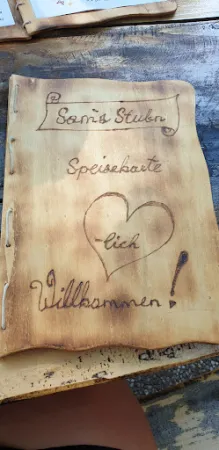 Sam's Stubn
Speisekarte
-lich
Willkommen!